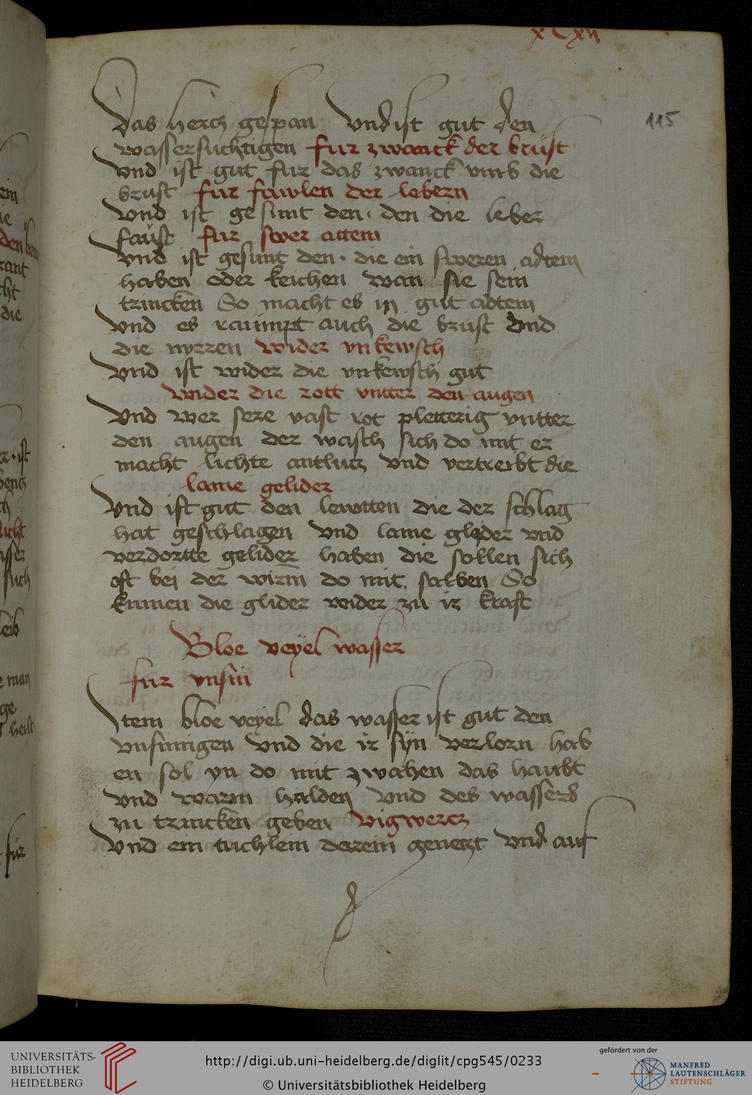 xCxii
115
das herch gespan Vnd ist gut den
wassersuchtigen fur zwanck der brust
Vnd ist gut fur das zwanck vmb die
brust fur fawlen der lebern
Vnd ist gesunt den · den die leber
fault fur swer attem
Vnd ist gesunt den · die ein sweren adtem
haben oder keichen wan sie sein
trincken So macht es in gut adtem
Vnd es raumpt auch die brust Vnd
die nyrren wider vnkewsch
Vnd ist wider die vnkewsch gut
wider die rott vntter den augen
Vnd wer sere vast rot pletterig vntter
den augen der wasch sich do mit er
macht lichte antlutz vnd vertreibt die
lame gelider
Vnd ist gut den lewtten die der schlag
hat geschlagen vnd lame glider vnd
verdortte gelider haben die sollen sich
oft bei der wirm do mit salben So
kumen die glider wider zu ir kraft
Bloe veyel wasser
fur vnsin
Item bloe veyel das wasser ist gut den
vnsinnigen Vnd die ir syn verlorn hab
en sol yn do mit zwahen das haubt
vnd warm halden vnd des wassers
zu trincken geben vigwercz
Vnd ein tuchlein darein genetzt vnd auf
ein
den
rant
die
ist
such
man
ge
heilt
für
UNIVERSITÄTS-
BIBLIOTHEK
HEIDELBERG
http://digi.ub.uni-heidelberg.de/diglit/cpg545/0233
© Universitätsbibliothek Heidelberg
gefördert von der
MANFRED
LAUTENSCHLÄGER
STIFTUNG